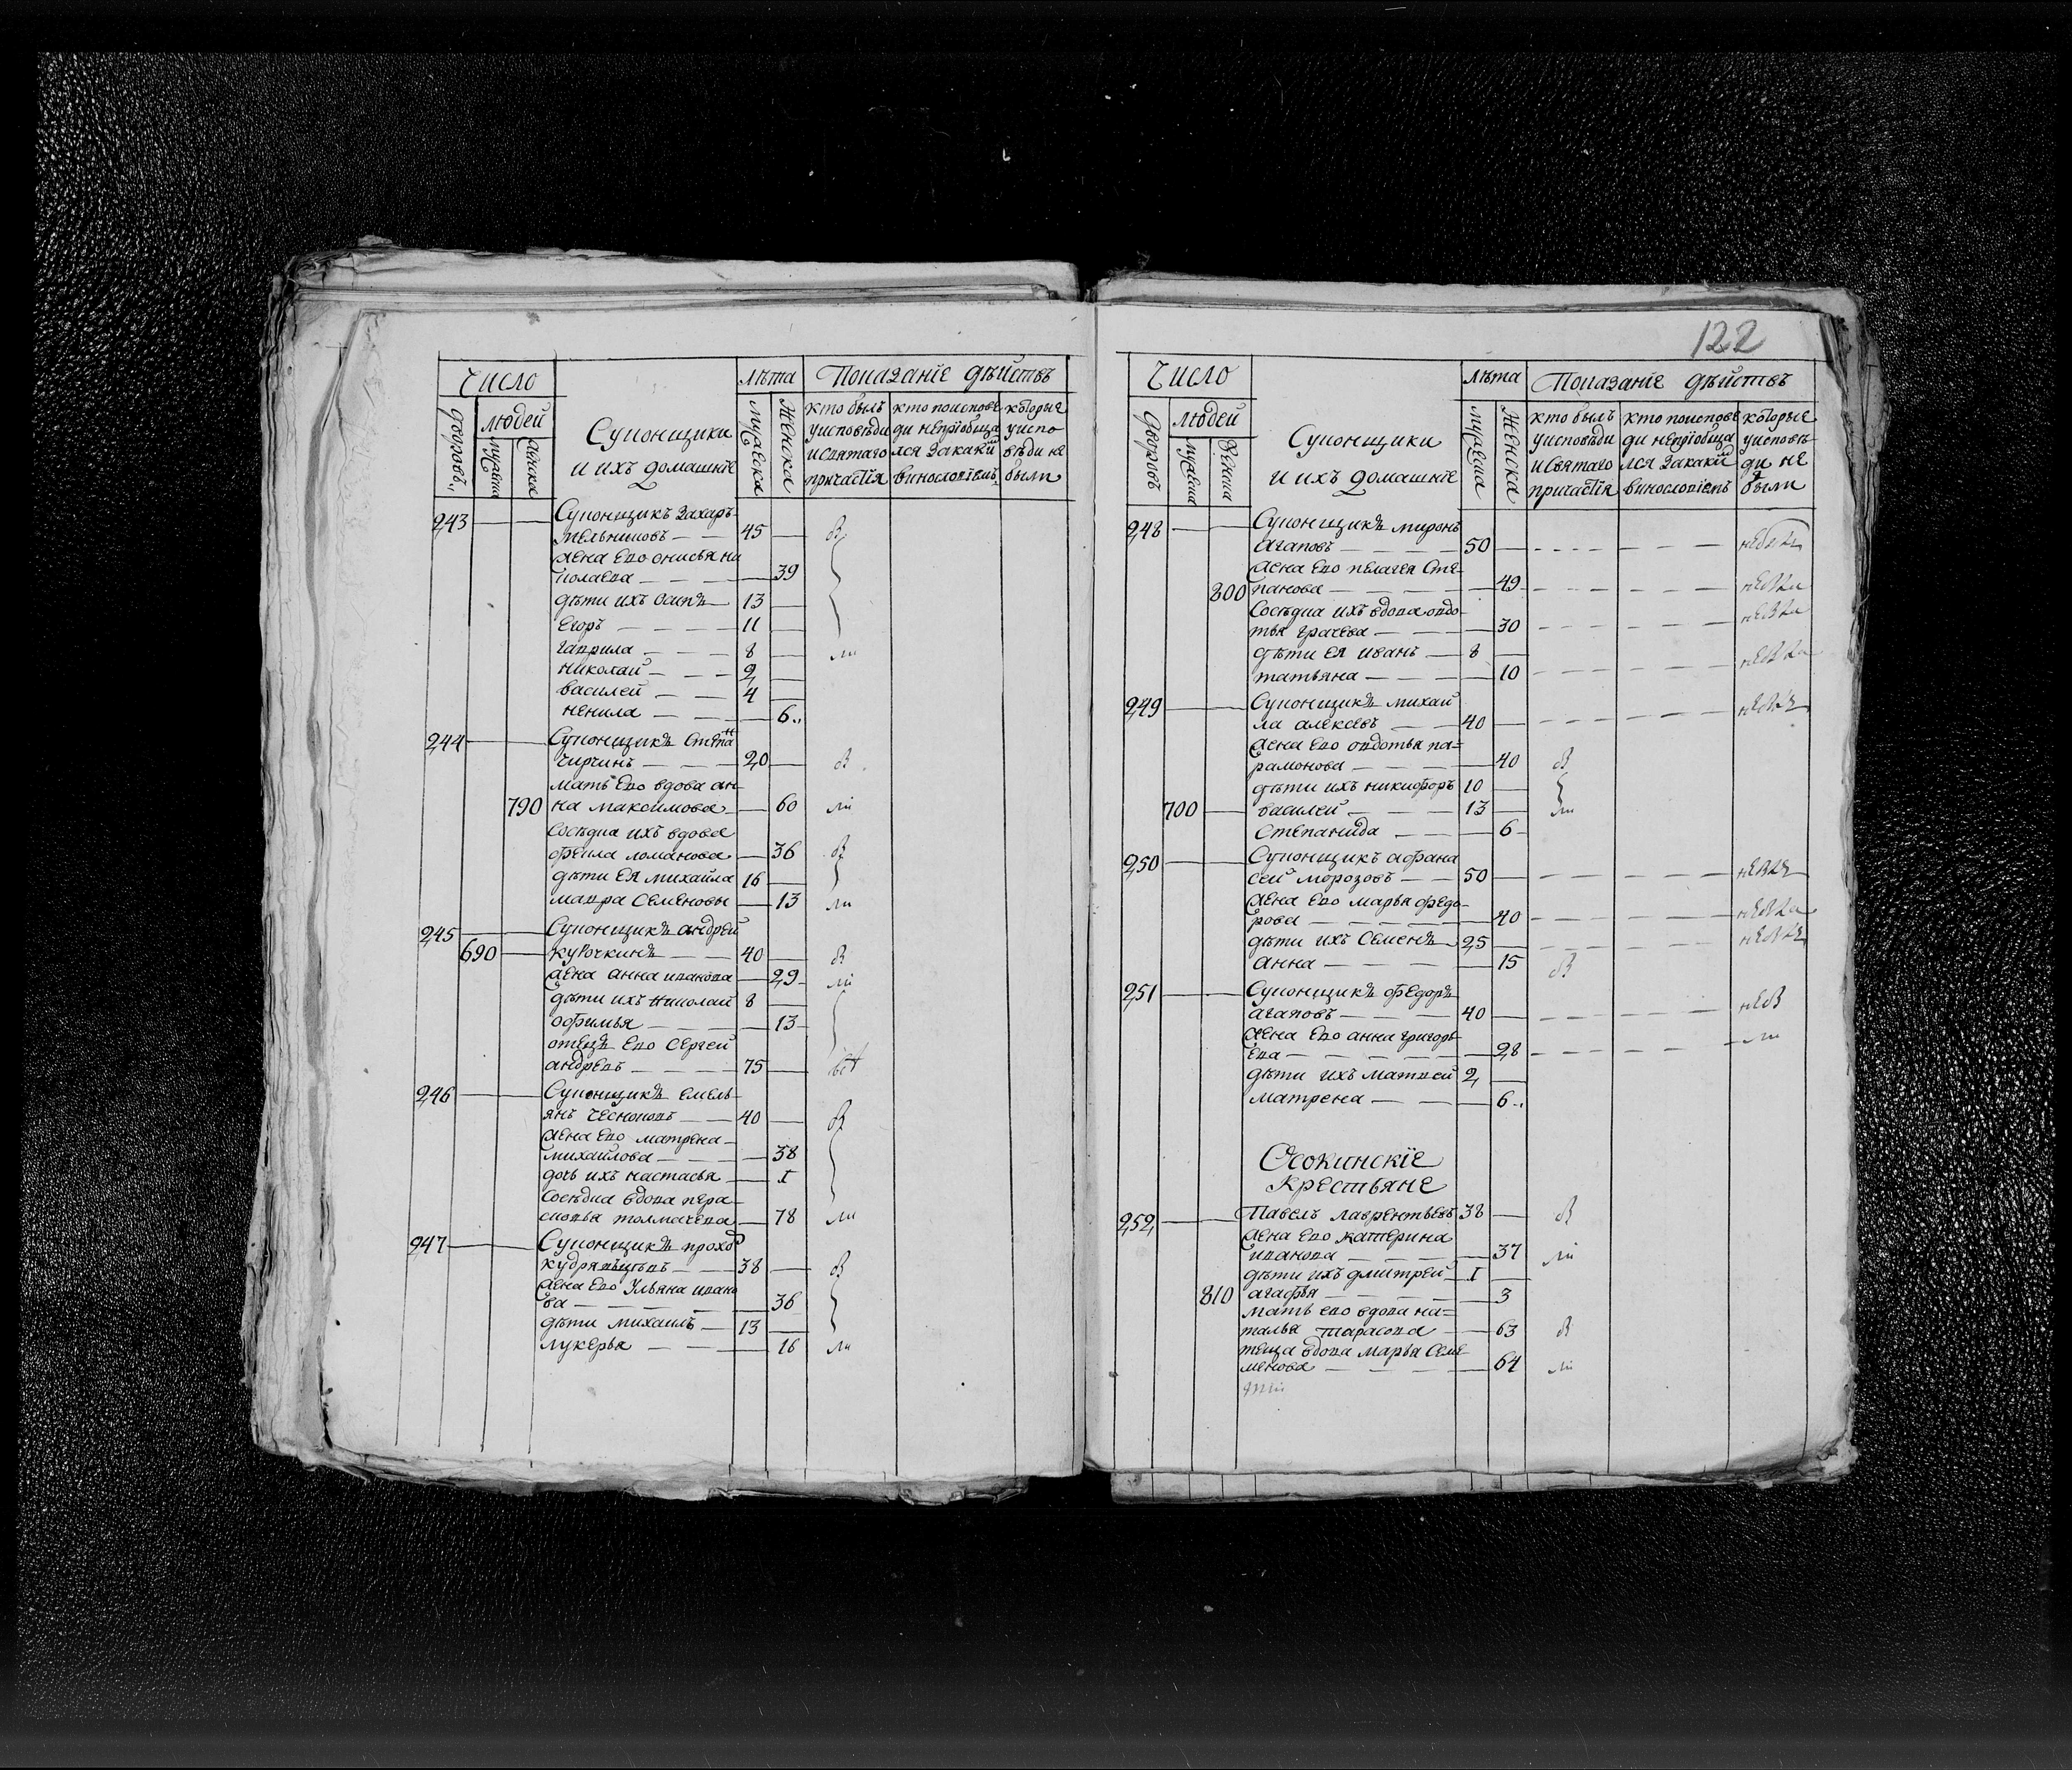 Число
лѣта
Показанїе дѣйствъ
дворовъ
людей
мужеска
женска
Суконщики
и ихъ домашнїе
мужеска
женска
кто былъ
уисповѣди
исвятаго
причастїя
кто поиспове
ди непрїобща
лся закакй
винословїемъ
которые
уиспо
вѣди не
были
243
Суконщикъ Захаръ
Мельниковъ 45
жена ево онисья ни
колаева 39
дѣти ихъ осипъ 13
Егоръ 11
гаврила 8
николай 2
василей 4
ненила 6
244
Суконщикъ степа
Чирчинъ 20
мать ево вдова ан
790 на максимова 60
Сосѣдка ихъ вдова
фекла романова 36
дѣти ея михайла 16
мавра семеновы 13
245
Суконщикъ андрей
690 курочкинъ 40
жена анна иванова 29
дѣти ихъ николай 8
офимья 13
отецъ ево Сергей
андревъ 75
246
Суконщикъ емель
янъ чесноковъ 40
жена ево матрена
михайлова 38
дочь ихъ настасья 1
Сосѣдка вдова пера
сковья толмачева 78
247
Суконщикъ прохо
кудрявцовъ 38
жена ево Ульяна ивано
ва 36
дѣти михаилъ 13
лукерья 16
122
Число
лѣта
Показанїе дѣйствъ
дворовъ
людей
мужеска
женска
Суконщики
и ихъ домашнїе
мужеска
женска
кто былъ
уисповѣди
исвятаго
причастїя
кто поиспове
ди непрїобща
лся закакй
винословїемъ
которые
уисповѣ
ди не
были
248
Суконщикъ миронъ
агаповъ 50
жена ево пелагея Сте
800 панова 49
Сосѣдка ихъ вдова овдо
тья грачева 30
дѣти ея иванъ 8
татьяна 10
249
Суконщикъ михай
ла алексевъ 40
жена ево овдотья па
рамонова 40
дѣти ихъ никифоръ 10
700 василей 13
степанида 6
250
Суконщикъ афана
сей морозовъ 50
жена ево марья федо
рова 40
дѣти ихъ Семенъ 25
анна 15
251
Суконщикъ федоръ
агаповъ 40
жена ево анна григорь
ева 28
дѣти ихъ матвей 2
матрена 6
Осокинскїе
крестьяне
252 Павелъ лаврентьевъ 38
жена ево катерина
иванова 37
дѣти ихъ дмитрей 1
810 агафья 3
мать ево вдова на
талья тарасова 63
теща вдова марья семе
менова 64